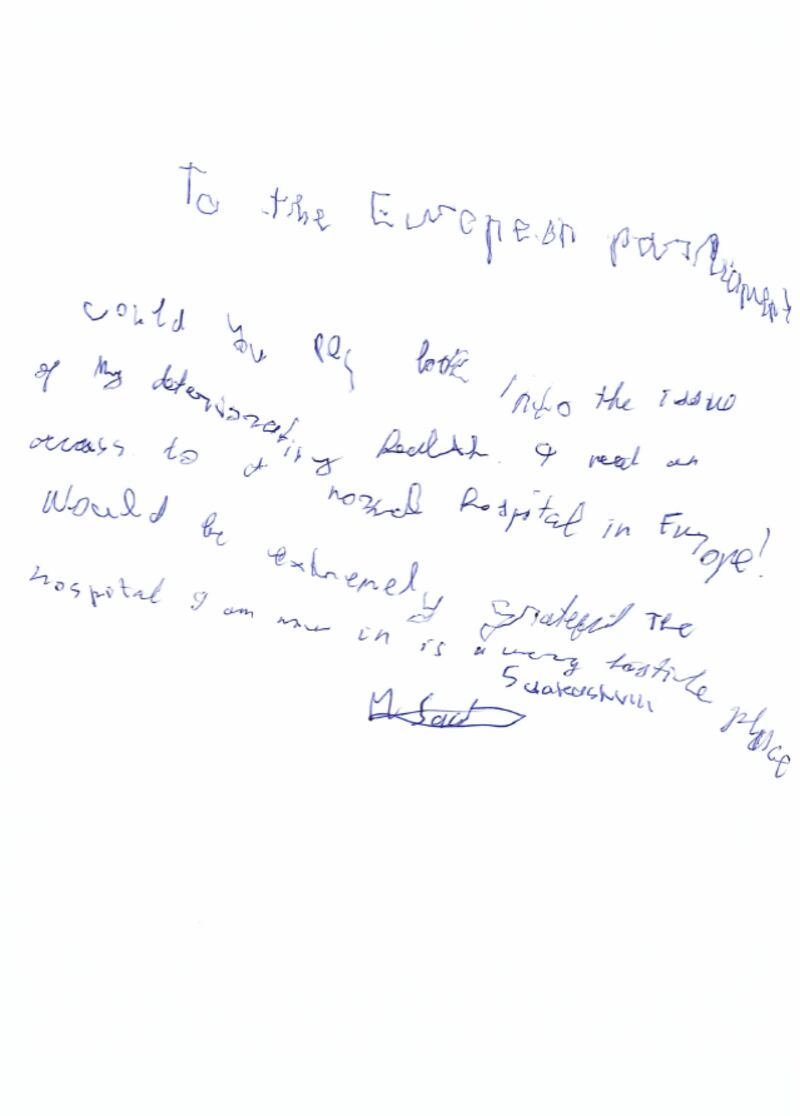 To the European parliament
could you plz look into the issue
of my deteriorating health. I need an
access to a normal hospital in Europe!
Would be extremely grateful The
hospital I am now in is a very hostile place
Saakashvili
M Saa